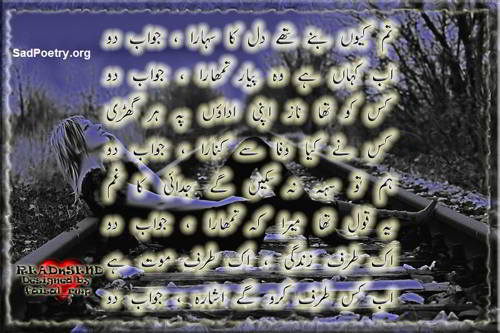 تم کیوں بنے تھے دل کا سہارا ، جواب دو
SadPoetry.org
اب کہاں ہے وہ پیار تمھارا ، جواب دو
کس کو تھا ناز اپنی اداؤں پہ ہر گھڑی
کس نے کیا وفا سے کنارا ، جواب دو
ہم تو سہہ نہ سکیں گے جدائی کا غم
یہ قول تھا میرا کہ تمھارا ، جواب دو
اک طرف زندگی ، اک طرف موت ہے
اب کس طرف کرو گے اشارہ ، جواب دو
Designed By